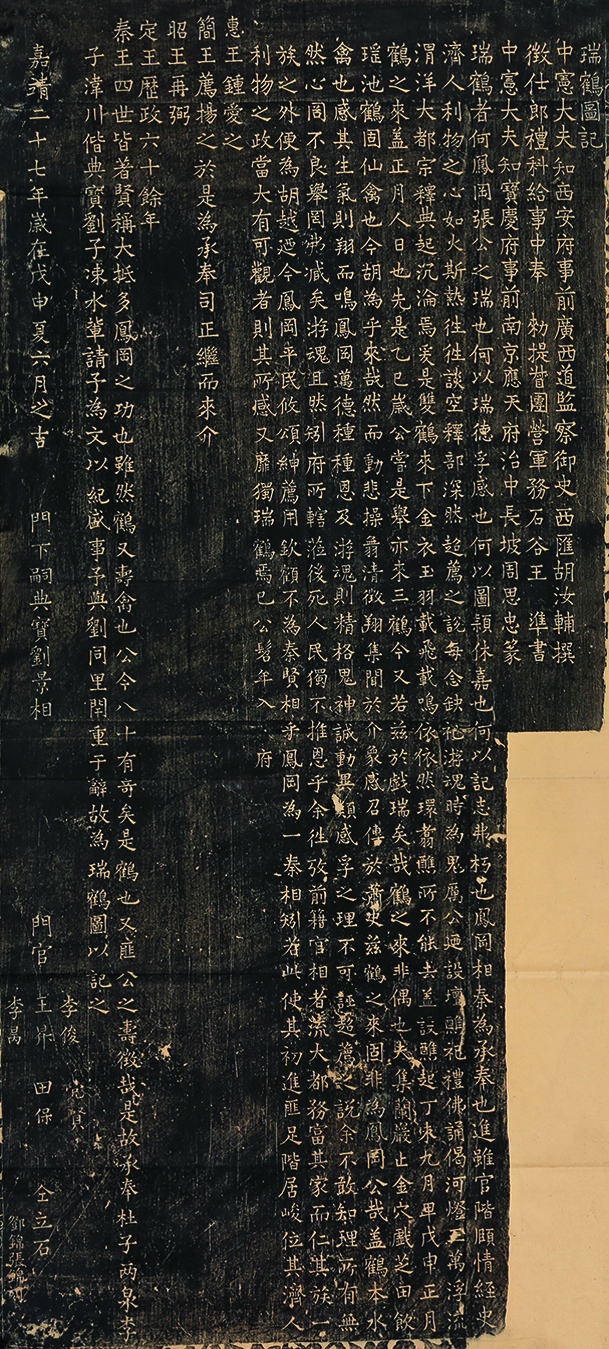 瑞鶴圖記
中憲大夫知西安府事前廣西道監察御史西滙胡汝輔撰
徵仕郎禮科給事中奉 勑提督團營軍務石谷王 準書
中憲大夫知寳慶府事前南京應天府治中長坡周思忠篆
瑞鶴者何鳳岡張公之瑞也何以瑞德孚感也何以圖頴休嘉也何以記志弗朽也鳳岡相秦為承奉也進雖官階頤情經史
濟人利物之心如火斯熱往往談空釋部深然超薦之説每念缺祀游魂時為鬼厲公廼設壇賙祀禮佛誦偈河燈三萬浮流
渭洋大都宗釋典起沉淪焉爰是雙鶴來下金衣玉羽載飛載鳴依依然環翥醮所不能去盖設醮起丁未九月畢戊申正月
鶴之來盖正月人日也先是乙巳歲公嘗是舉亦來三鶴今又若兹於戲瑞矣哉鶴之來非偶也夫集蘭巖止金穴戲芝田飲
瑶池鶴固仙禽也今胡為乎來哉然而動悲操翥清徵翔集聞於介象感召傳於蕭史兹鶴之來固非為鳳岡公哉盖鶴本水
禽也感其生氣則翔而鳴鳳岡邁德種種恩及游魂則精格鬼神誠動異類感孚之理不可誣超薦之説余不敢知理所有無
然心罔不良舉罔弗臧矣游魂且然矧府所轄涖後死人民獨不推恩乎余徃攷前籍官相者流大都務富其家而仁其族一
族之外便為胡越廼今鳳岡平民攸頌紳薦用欽顧不為秦賢相乎鳳岡為一秦相矧若此使其初進匪足階居峻位其濟人
利物之政當大有可觀者則其所感又靡獨瑞鶴焉已公髫年入 府
惠王鍾愛之
簡王薦揚之於是為承奉司正繼而來介
昭王再弼
定王歷政六十餘年
秦王四世皆著賢稱大抵多鳳岡之功也雖然鶴又壽禽也公今八十有奇矣是鶴也又匪公之壽徵哉是故承奉杜子两泉李
子漳川偕典寳劉子涑水輩請予為文以紀盛事予與劉同里閈重于辭故為瑞鶴圖以記之
嘉靖二十七年歲在戊申夏六月之吉 門下嗣典寳劉景相 門官 王昇 李俊 李暠 田保 賢 仝立石
鄒錦張錦